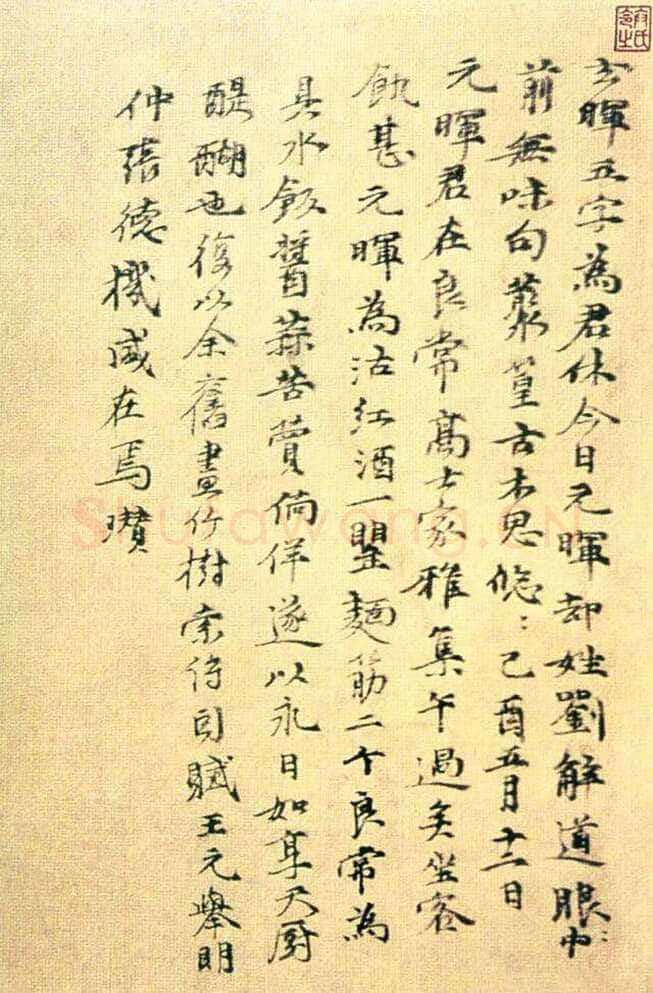 玄暉五字為君休今日元暉却姓劉解道眼:中
前無味句叢篁古木思悠:己酉五月十二日
元暉君在良常高士家雅集午過矣坐客
飢甚元暉為沽紅酒一罌麵筋二个良常為
具水飯醬蒜苦蕒倘佯遂以永日如享天厨
醍醐也復以余舊畫竹樹索詩因賦王元舉明
仲張德機咸在焉瓚
Shufawang.CN